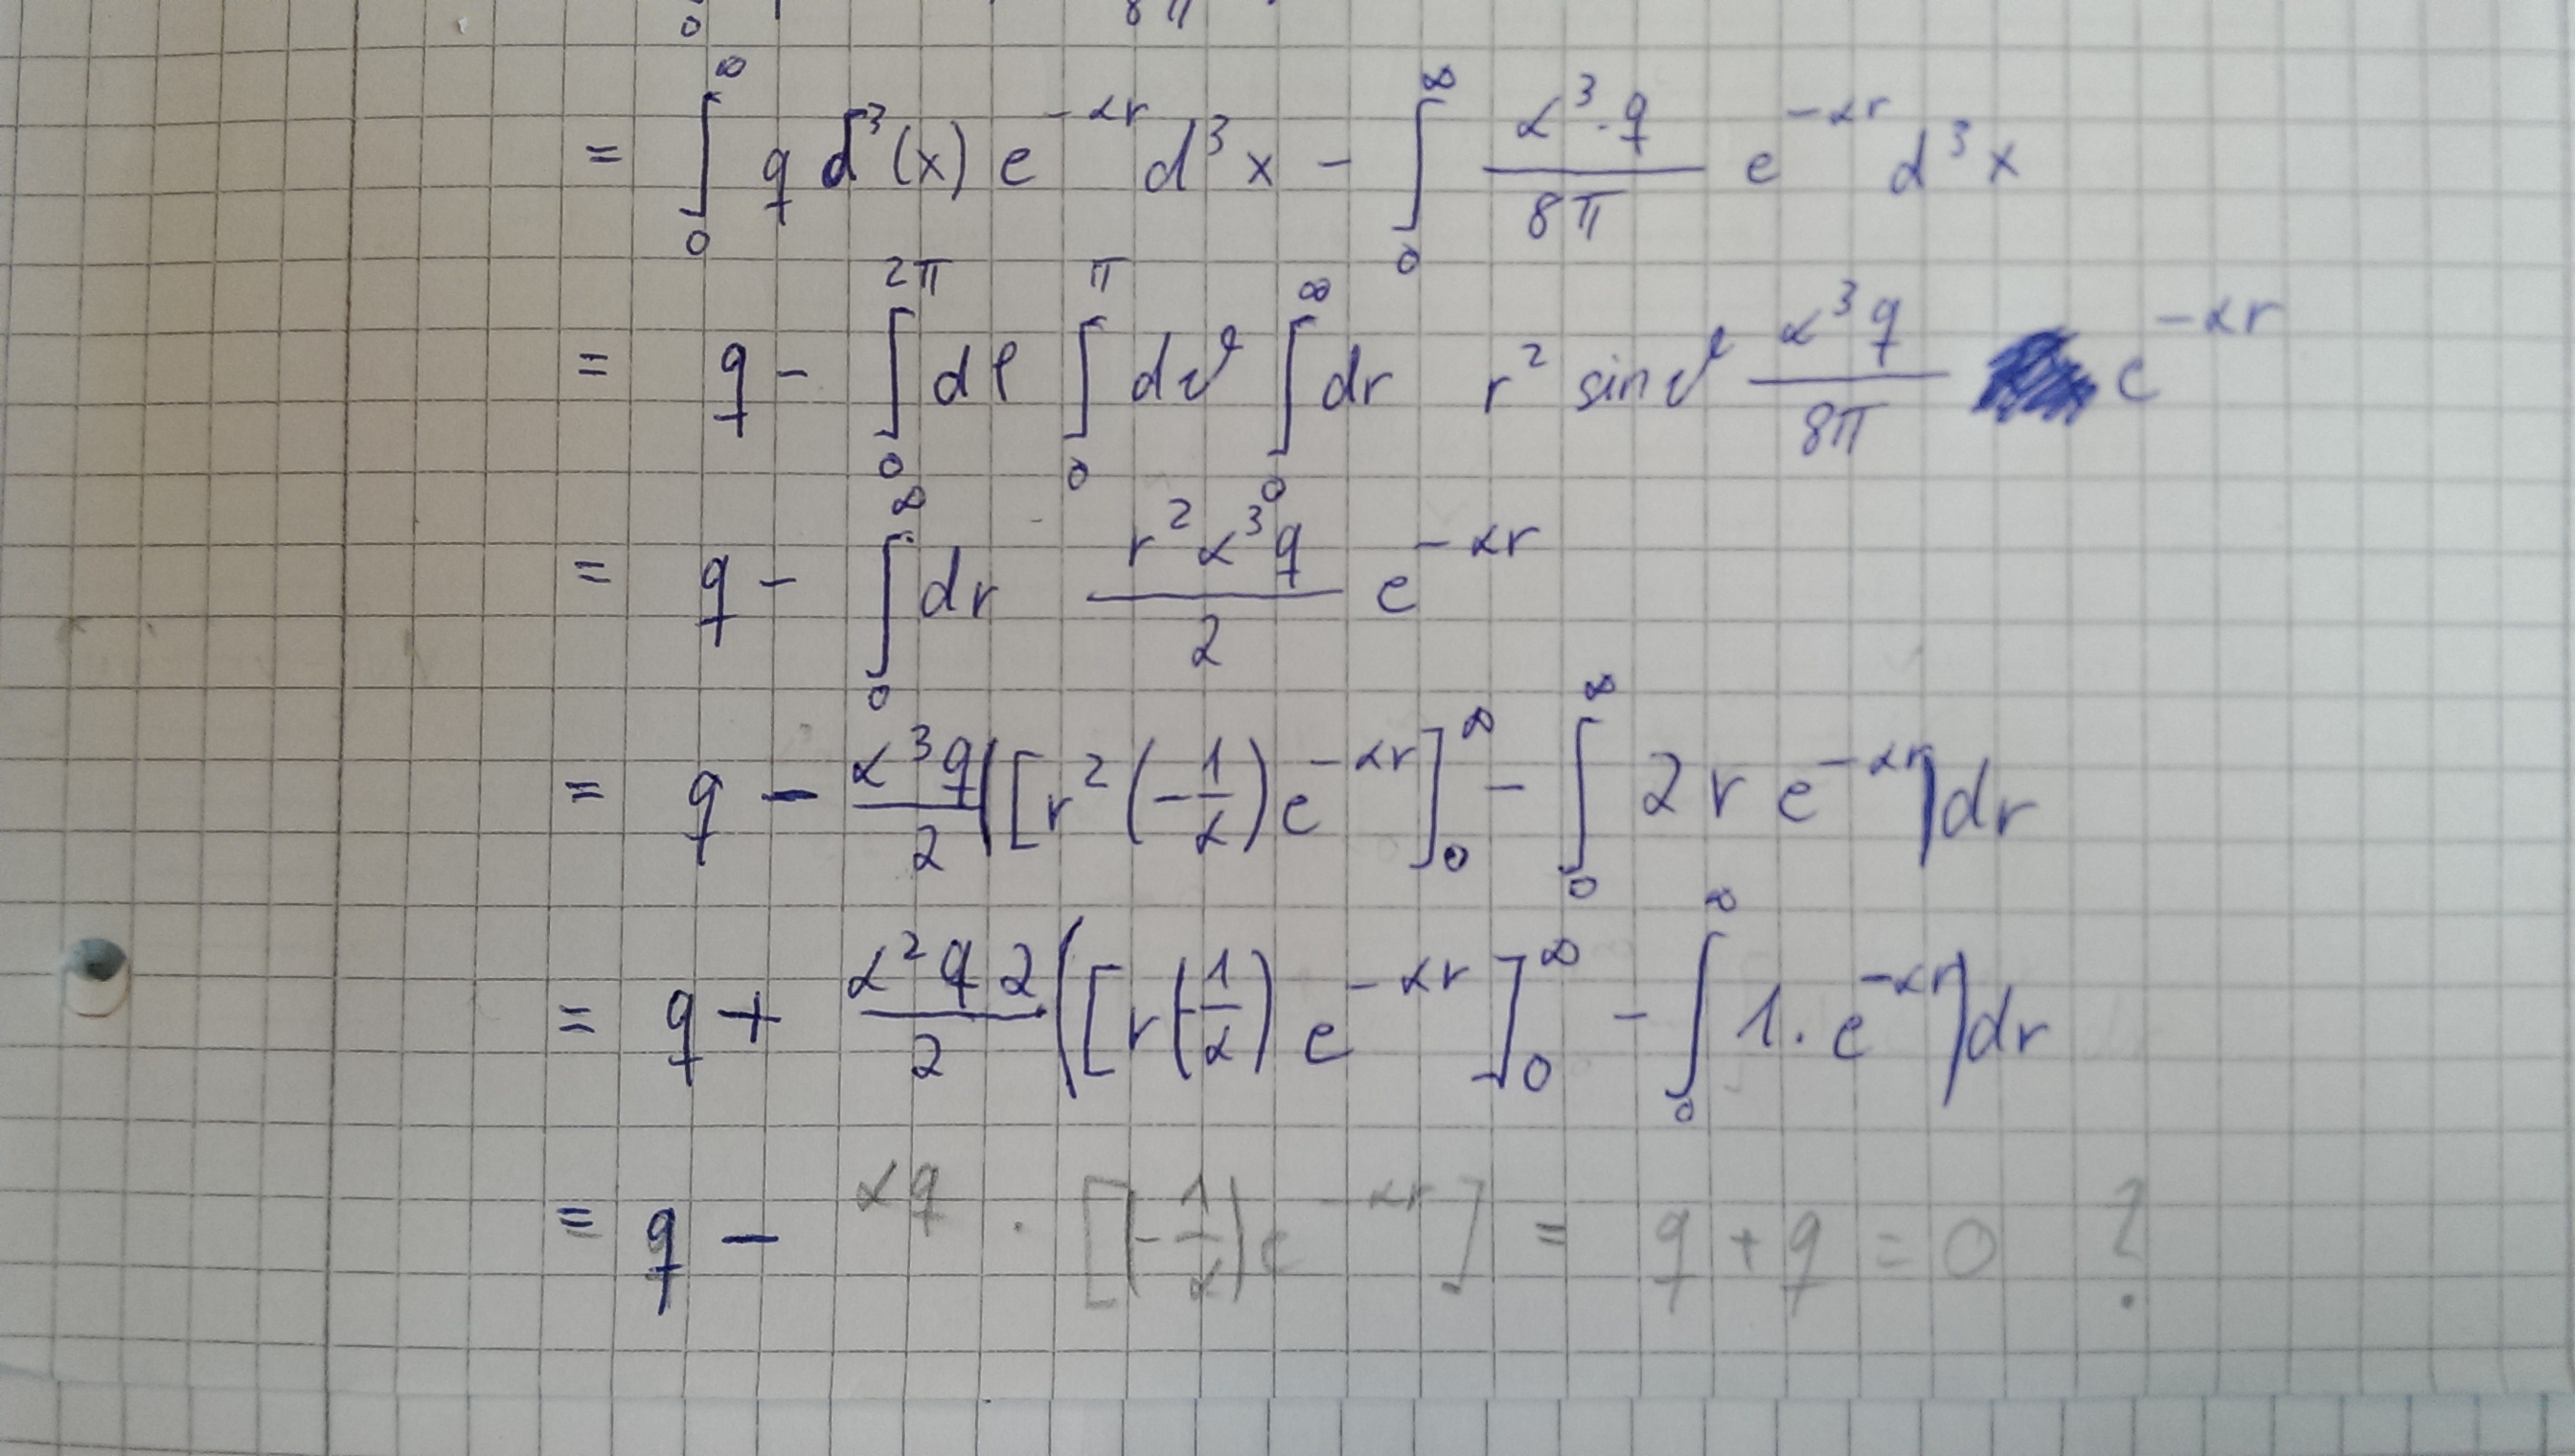 0 8π
= ∫₀^∞ q δ³(x) e^{-αr} d³x - ∫₀^∞ \frac{α³·q}{8π} e^{-αr} d³x
= q - ∫₀^{2π} dφ ∫₀^π dϑ ∫₀^∞ dr r² sinϑ \frac{α³q}{8π} e^{-αr}
= q - ∫₀^∞ dr \frac{r²α³q}{2} e^{-αr}
= q - \frac{α³q}{2} ([r²(-\frac{1}{α})e^{-αr}]₀^∞ - ∫₀^∞ 2r e^{-αr})dr
= q + \frac{α²q2}{2} ([r(-\frac{1}{α})e^{-αr}]₀^∞ - ∫₀^∞ 1·e^{-αr})dr
= q - αq · [(-\frac{1}{α})e^{-αr}] = q + q = 0 ?